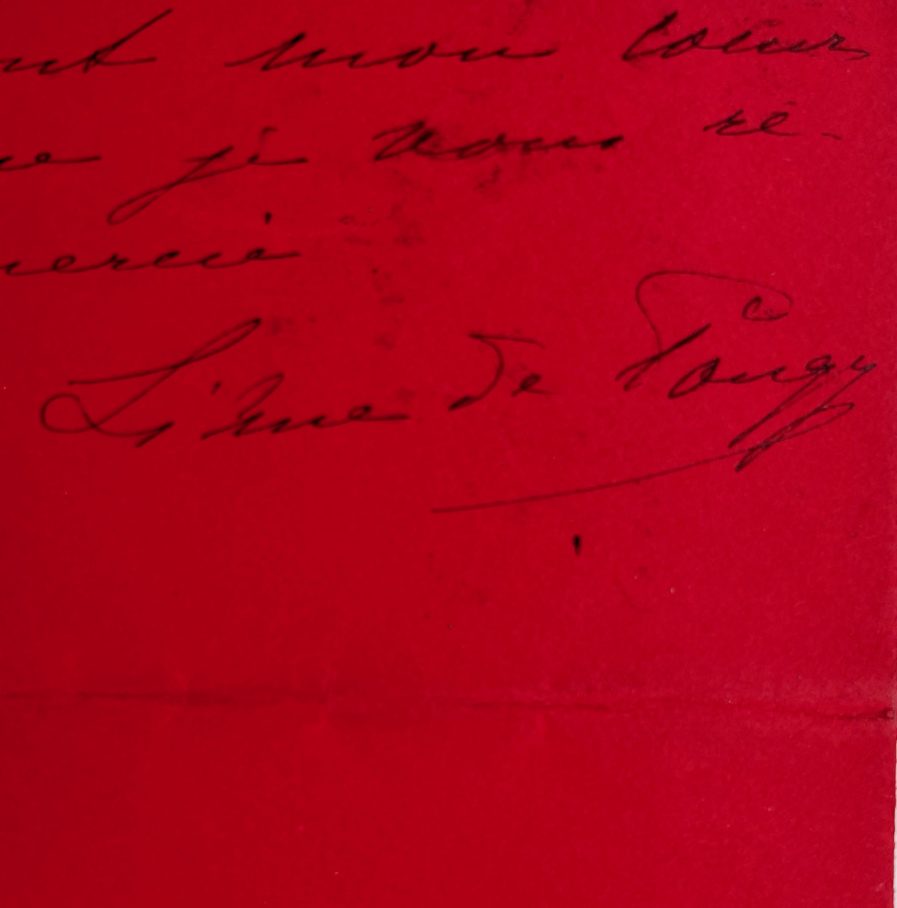 ut mon coeur
ue je vous re-
mercie
Liane de Pougy